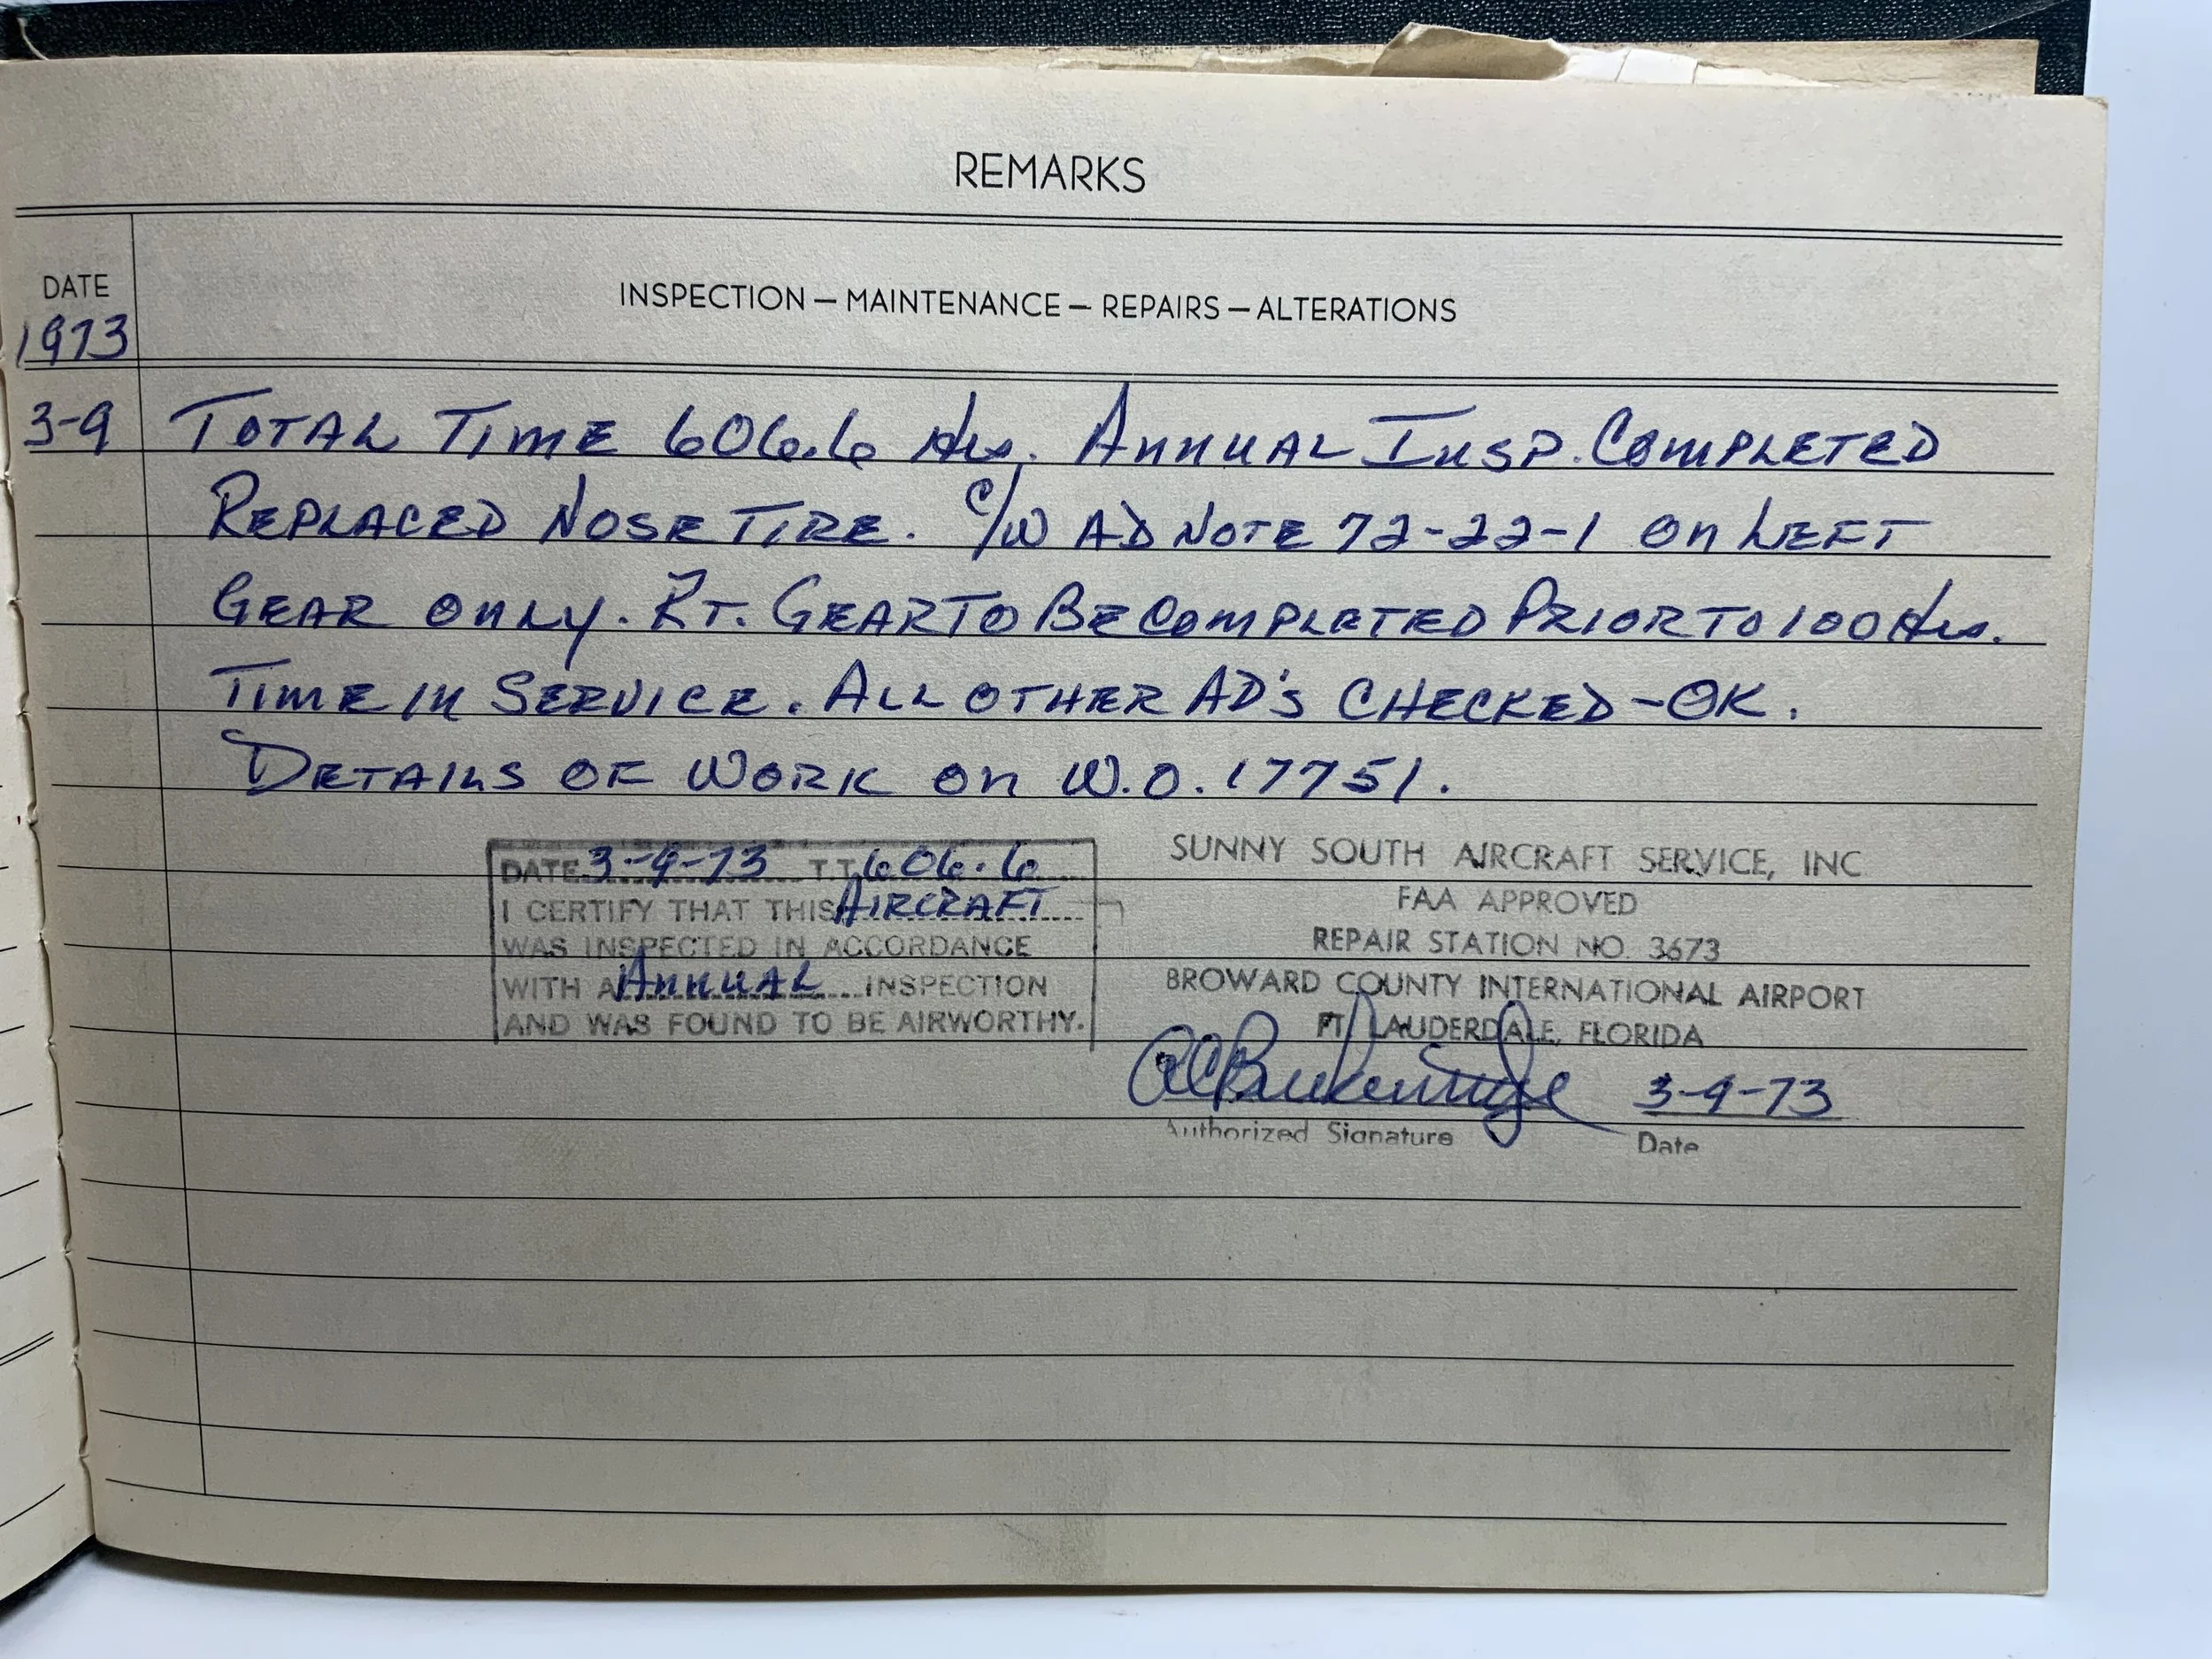 REMARKS
DATE
INSPECTION — MAINTENANCE — REPAIRS — ALTERATIONS
1973
3-9 TOTAL TIME 606.6 Hrs. ANNUAL INSP. COMPLETED
REPLACED NOSE TIRE. C/W AD NOTE 72-22-1 ON LEFT
GEAR ONLY. RT. GEAR TO BE COMPLETED PRIOR TO 100 Hrs.
TIME IN SERVICE. ALL OTHER AD'S CHECKED - OK.
DETAILS OF WORK ON W.O. 17751.
DATE 3-9-73 T.T. 606.6
I CERTIFY THAT THIS AIRCRAFT
WAS INSPECTED IN ACCORDANCE
WITH A ANNUAL INSPECTION
AND WAS FOUND TO BE AIRWORTHY.
SUNNY SOUTH AIRCRAFT SERVICE, INC
FAA APPROVED
REPAIR STATION NO. 3673
BROWARD COUNTY INTERNATIONAL AIRPORT
FT. LAUDERDALE, FLORIDA
3-9-73
Authorized Signature Date